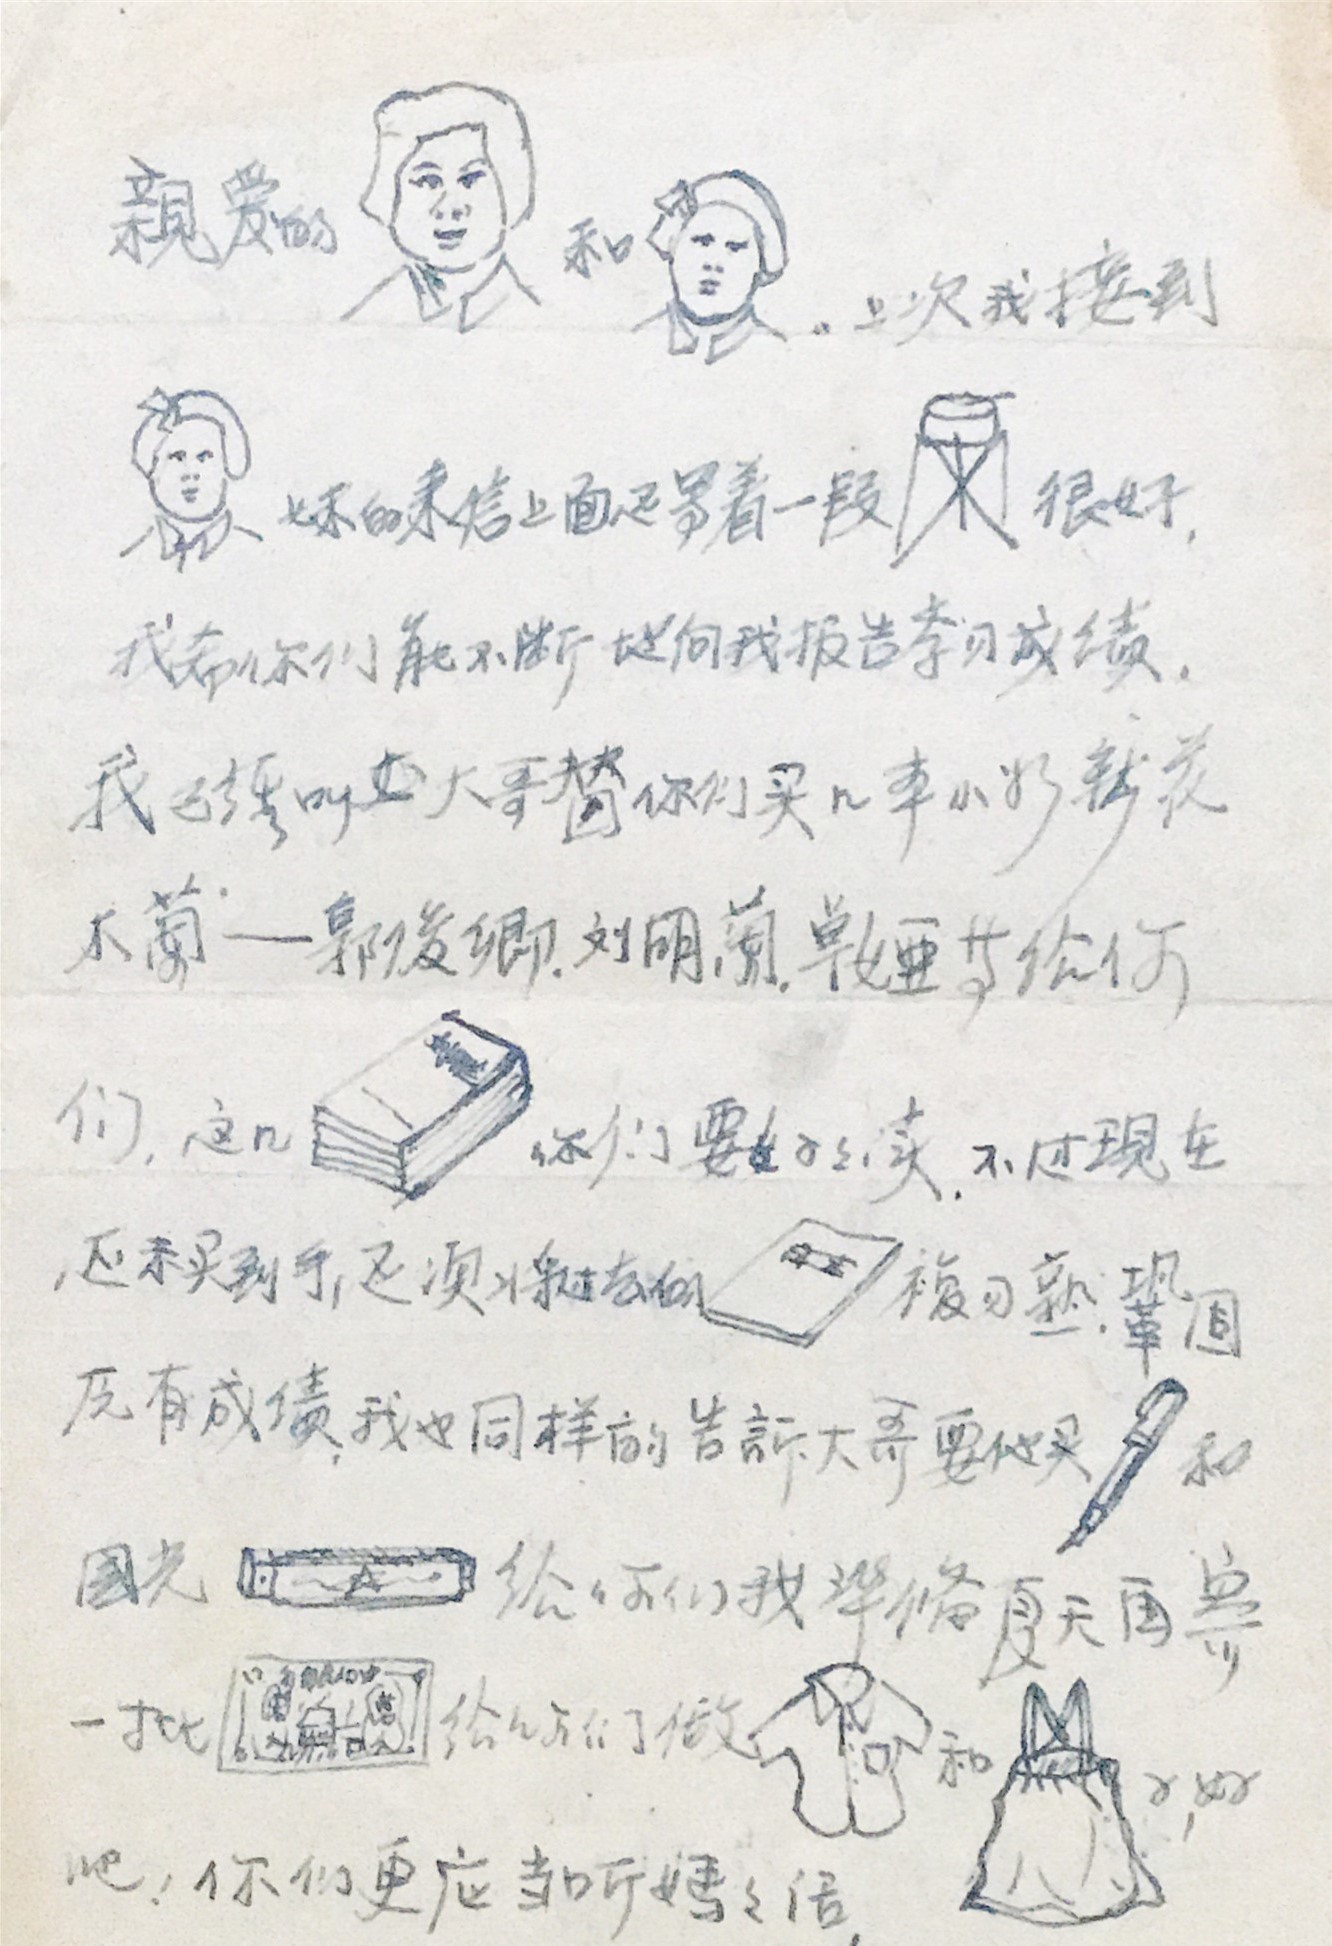 親爱的 和 。上次我接到
妹的来信上面还写着一段 很好,
我希你们能不断地向我报告学习成绩.
我已经叫 大哥替你们买几本小 花
木蘭——郭俊卿.刘明蘭. 娅等给你
们,这几 你们要好々读.不过現在
还未买到手,还须将过去的 複习熟.鞏固
原有成绩,我也同样的告訴大哥要他买 和
国光 给你们我準俻夏天再寄
一批 给你们做 和 好
吧!你们更应当听媽々话,